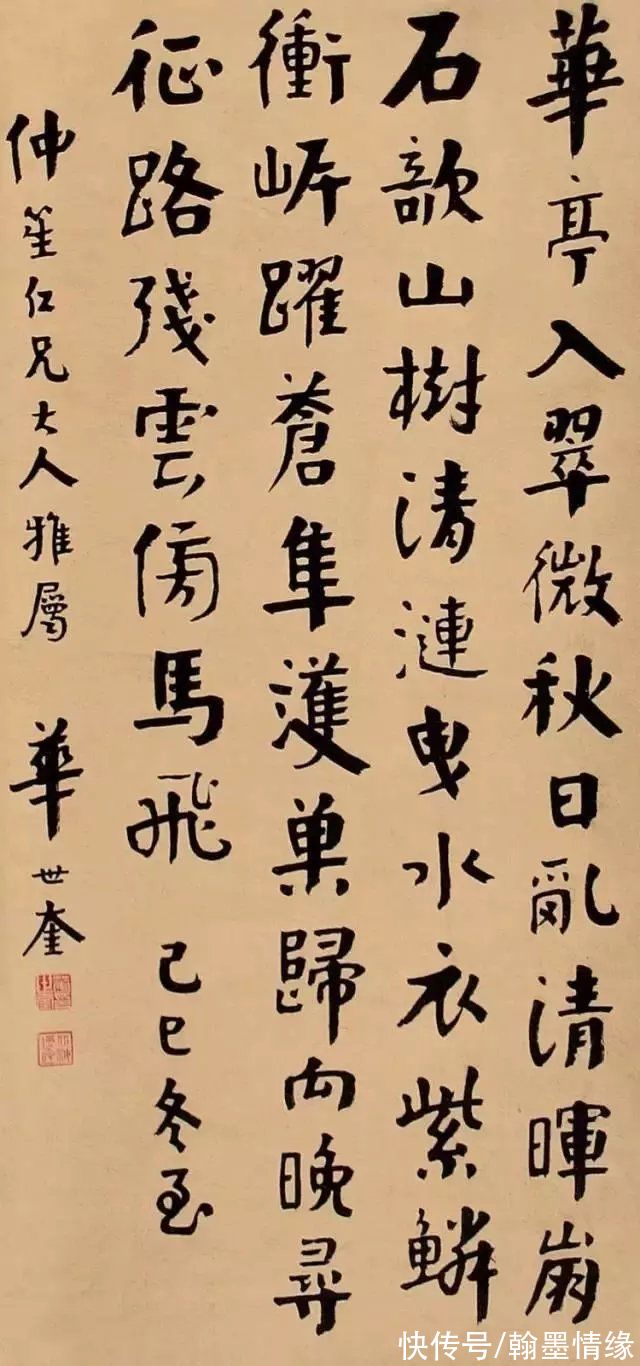 華亭入翠微秋日亂清暉崩
石欹山樹清漣曳水衣紫鱗
衝岸躍蒼隼護巢歸向晚尋
征路殘雲傍馬飛 己巳冬至
仲笙仁兄大人雅屬 華世奎
快传号/翰墨情缘